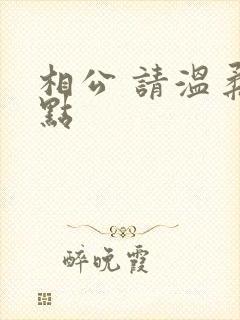 相公 請溫柔
點
醉晚霞